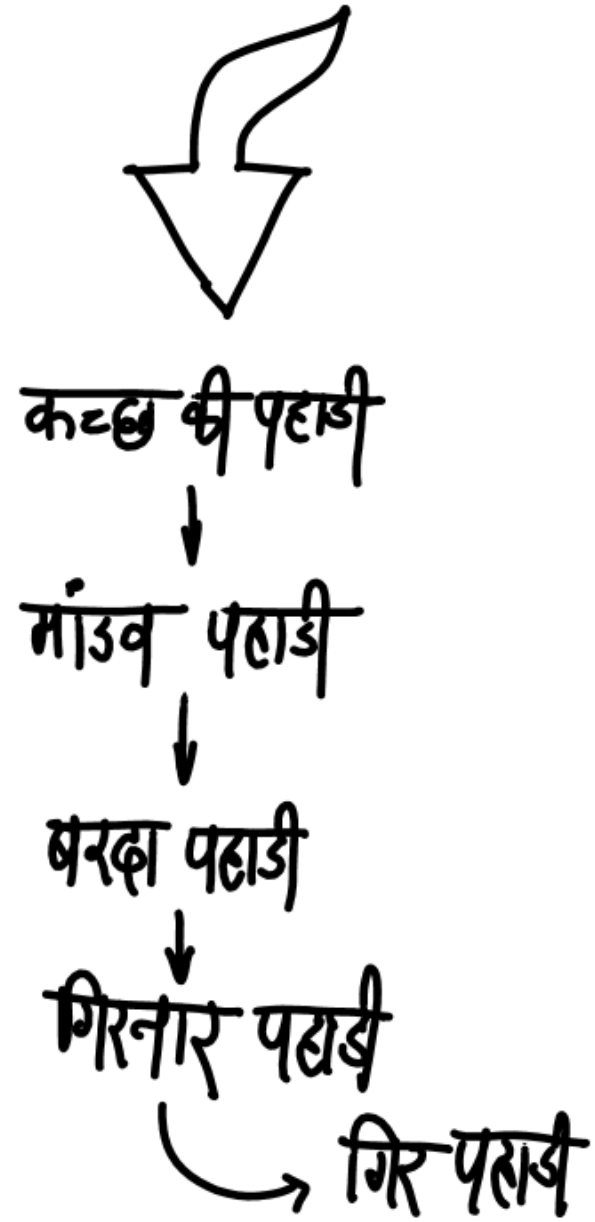 कच्छ की पहाडी
मांडव पहाडी
बरदा पहाडी
गिरनार पहाडी
गिर पहाडी